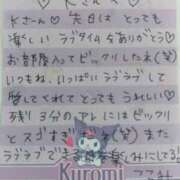 ♡ Kさん ♡
Kさん♡ 先日は とっても
楽しい ラブタイムをありがとう♡
お部屋入って ビックリしたネ(笑)
いつもね いっぱいラブラブして
愛してくれて とってもうれしい♡
残り 3分の アレ にはビックリ
とスゴすぎ ネ(笑) また
ラブラブできる
楽しみにしてる!
Kuromi